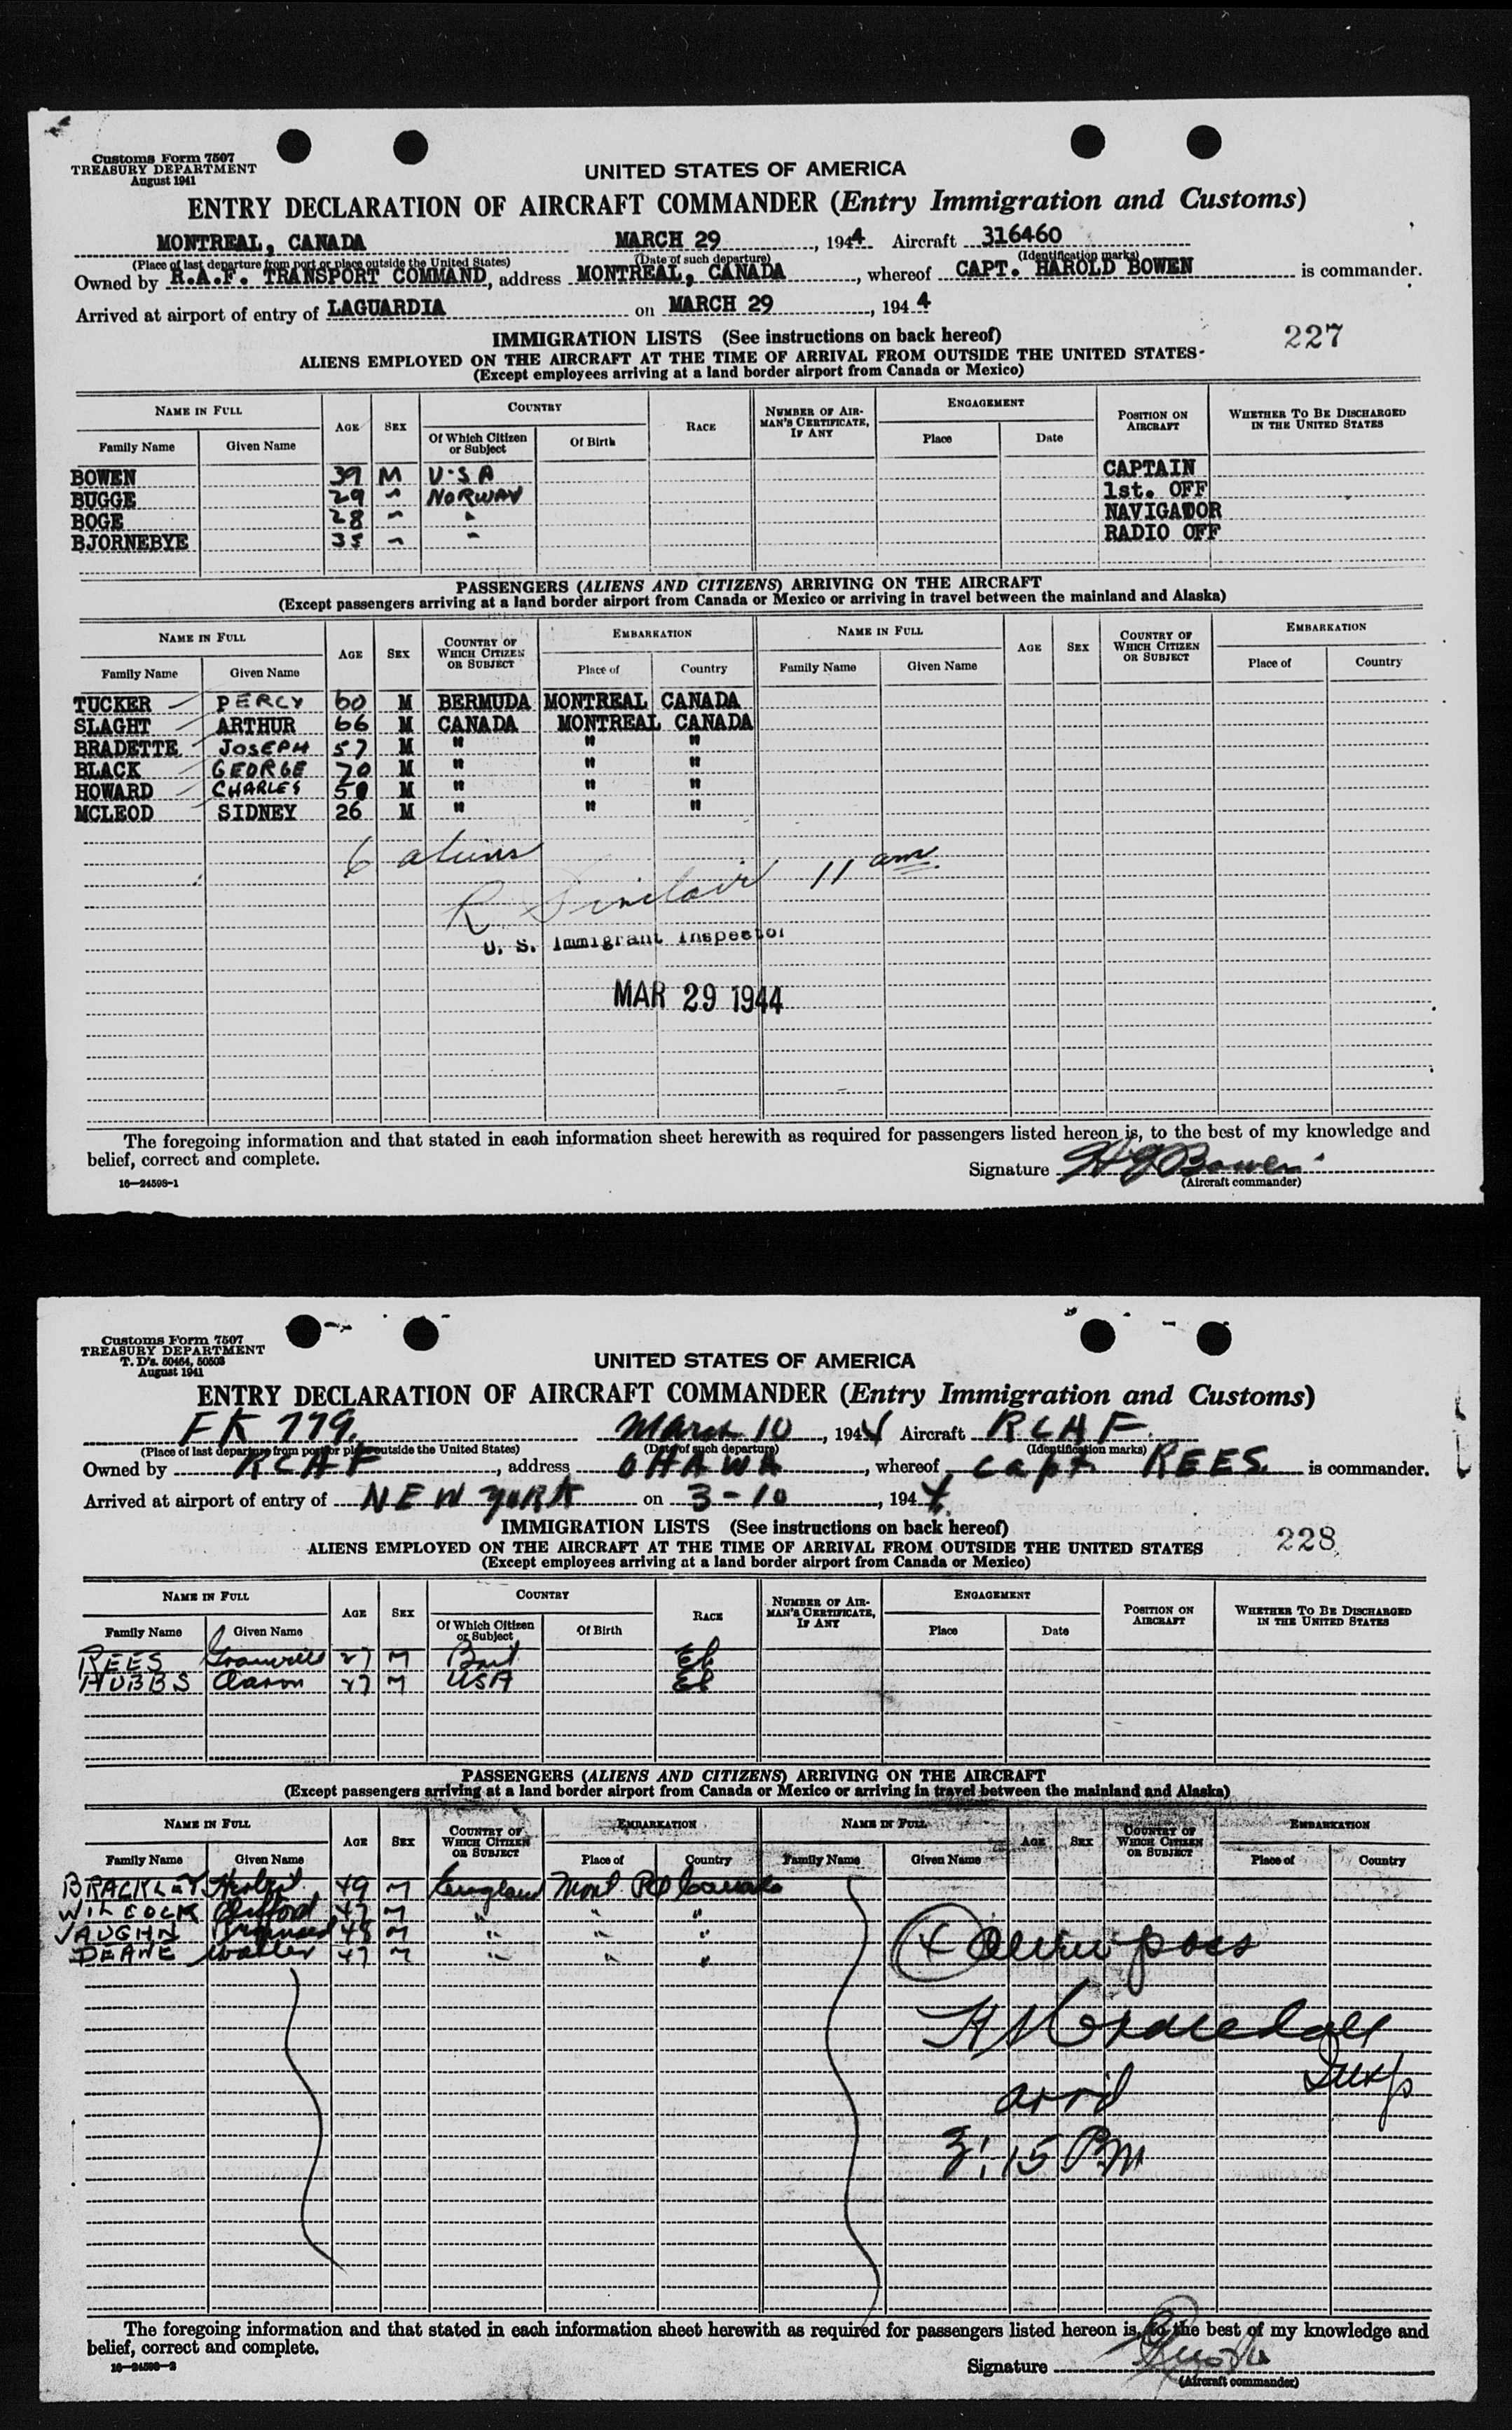 Customs Form 7507
TREASURY DEPARTMENT
August 1941
UNITED STATES OF AMERICA
ENTRY DECLARATION OF AIRCRAFT COMMANDER (Entry Immigration and Customs)
MONTREAL, CANADA MARCH 29, 1944 Aircraft 316460
(Place of last departure from port or place outside the United States) (Date of such departure) (Identification marks)
Owned by R.A.F. TRANSPORT COMMAND, address MONTREAL, CANADA, whereof CAPT. HAROLD BOWEN is commander.
Arrived at airport of entry of LAGUARDIA on MARCH 29, 1944
IMMIGRATION LISTS (See instructions on back hereof) 227
ALIENS EMPLOYED ON THE AIRCRAFT AT THE TIME OF ARRIVAL FROM OUTSIDE THE UNITED STATES
(Except employees arriving at a land border airport from Canada or Mexico)
NAME IN FULL AGE SEX COUNTRY RACE NUMBER OF AIRMAN'S CERTIFICATE, IF ANY ENGAGEMENT POSITION ON AIRCRAFT WHETHER TO BE DISCHARGED IN THE UNITED STATES
Family Name Given Name Of Which Citizen or Subject Of Birth Place Date
BOWEN 39 M U.S.A CAPTAIN
BUGGE 29 " NORWAY 1st. OFF
BOGE 28 " " NAVIGATOR
BJORNEBYE 35 " " RADIO OFF
PASSENGERS (ALIENS AND CITIZENS) ARRIVING ON THE AIRCRAFT
(Except passengers arriving at a land border airport from Canada or Mexico or arriving in travel between the mainland and Alaska)
NAME IN FULL AGE SEX COUNTRY OF WHICH CITIZEN OR SUBJECT EMBARKATION NAME IN FULL AGE SEX COUNTRY OF WHICH CITIZEN OR SUBJECT EMBARKATION
Family Name Given Name Place of Country Family Name Given Name Place of Country
TUCKER PERCY 60 M BERMUDA MONTREAL CANADA
SLAGHT ARTHUR 66 M CANADA MONTREAL CANADA
BRADETTE JOSEPH 57 M " " "
BLACK GEORGE 70 M " " "
HOWARD CHARLES 50 M " " "
MCLEOD SIDNEY 26 M " " "
6 aliens
R Sinclair 11 am.
U. S. Immigrant Inspector
MAR 29 1944
The foregoing information and that stated in each information sheet herewith as required for passengers listed hereon is, to the best of my knowledge and
belief, correct and complete.
Signature H J Bowen
16—24598-1 (Aircraft commander)
Customs Form 7507
TREASURY DEPARTMENT
T. D's. 50464, 50503
August 1941
UNITED STATES OF AMERICA
ENTRY DECLARATION OF AIRCRAFT COMMANDER (Entry Immigration and Customs)
FK 779. March 10, 1944 Aircraft RCAF.
(Place of last departure from port or place outside the United States) (Date of such departure) (Identification marks)
Owned by RCAF, address OTTAWA, whereof Capt REES is commander.
Arrived at airport of entry of NEW YORK on 3-10, 1944
IMMIGRATION LISTS (See instructions on back hereof) 228
ALIENS EMPLOYED ON THE AIRCRAFT AT THE TIME OF ARRIVAL FROM OUTSIDE THE UNITED STATES
(Except employees arriving at a land border airport from Canada or Mexico)
NAME IN FULL AGE SEX COUNTRY RACE NUMBER OF AIRMAN'S CERTIFICATE, IF ANY ENGAGEMENT POSITION ON AIRCRAFT WHETHER TO BE DISCHARGED IN THE UNITED STATES
Family Name Given Name Of Which Citizen or Subject Of Birth Place Date
REES Granville 27 M Brit
HUBBS Aaron 27 M USA
PASSENGERS (ALIENS AND CITIZENS) ARRIVING ON THE AIRCRAFT
(Except passengers arriving at a land border airport from Canada or Mexico or arriving in travel between the mainland and Alaska)
NAME IN FULL AGE SEX COUNTRY OF WHICH CITIZEN OR SUBJECT EMBARKATION NAME IN FULL AGE SEX COUNTRY OF WHICH CITIZEN OR SUBJECT EMBARKATION
Family Name Given Name Place of Country Family Name Given Name Place of Country
BRACKLEY Herbert 49 M England Mont PQ Canada
WILCOCK Clifford 47 M " " "
VAUGHN 48 M " " "
DEANE Walter 47 M " " "
4 alien pass
Insp
arrd
3:15 PM
The foregoing information and that stated in each information sheet herewith as required for passengers listed hereon is, to the best of my knowledge and
belief, correct and complete.
Signature
16—24598-2 (Aircraft commander)